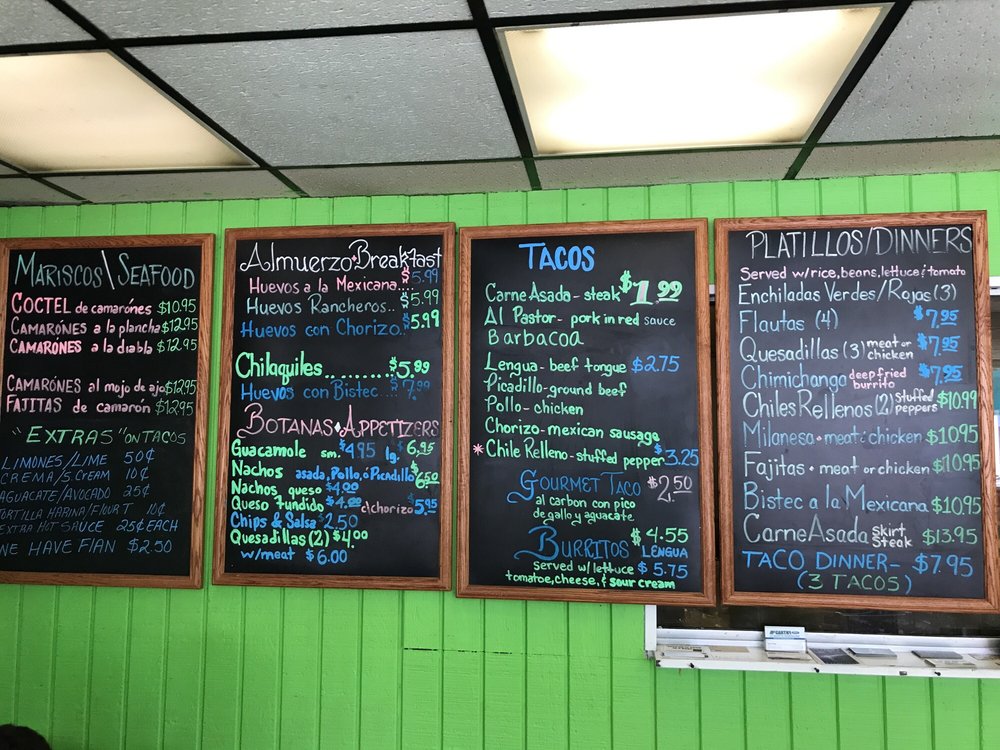 MARISCOS\SEAFOOD
COCTEL de camarónes $10.95
CAMARÓNES a la plancha $12.95
CAMARÓNES a la diabla $12.95
CAMARÓNES al mojo de ajo $12.95
FAJITAS de camaron $12.95
"EXTRAS" ON TACOS
LIMONES/LIME 50¢
CREMA/S.CREAM 10¢
AGUACATE/AVOCADO 25¢
TORTILLA HARINA/FLOUR T 10¢
EXTRA HOT SAUCE 25¢ EACH
WE HAVE FLAN $2.50
Almuerzo Breakfast
Huevos a la Mexicana.. $5.99
Huevos Rancheros.. $5.99
Huevos con Chorizo.. $5.99
Chilaquiles.......... $5.99
Huevos con Bistec... $7.99
BOTANAS APPETIZERS
Guacamole sm. $4.95 lg. $6.95
Nachos asada, Pollo, ó Picadillo $6.50
Nachos queso $4.00
Queso fundido $4.00 c\chorizo $5.95
Chips & Salsa 2.50
Quesadillas (2) $4.00
w/meat $6.00
TACOS
Carne Asada - steak $1.99
Al Pastor - pork in red sauce
Barbacoa
Lengua - beef tongue $2.75
Picadillo - ground beef
Pollo - chicken
Chorizo - mexican sausage
* Chile Relleno - stuffed pepper $3.25
GOURMET TACO $2.50
al carbon con pico
de gallo y aguacate.
BURRITOS $4.55
LENGUA $5.75
served w/ lettuce
tomatoe, cheese, & sour cream
PLATILLOS/DINNERS
Served w/rice, beans, lettuce & tomato
Enchiladas Verdes/Rojas (3)
Flautas (4) $7.95
Quesadillas (3) meat or chicken $7.95
Chimichanga deep fried burrito $7.95
Chiles Rellenos (2) stuffed peppers $10.99
Milanesa • meat & chicken $10.95
Fajitas • meat or chicken $10.95
Bistec a la Mexicana $10.95
Carne Asada Skirt Steak $13.95
TACO DINNER - $7.95
(3 TACOS)